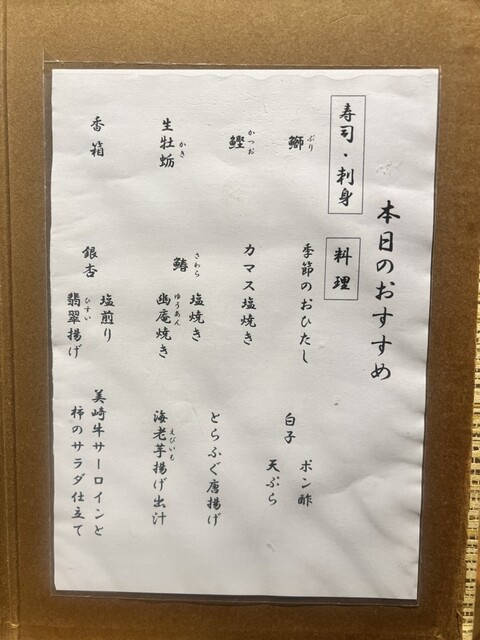 本日のおすすめ
寿司・刺身
鰤
ぶり
鰹
かつお
生牡蛎
かき
香箱
料理
季節のおひたし
カマス塩焼き
鰆
さわら
塩焼き
幽庵焼き
ゆうあん
銀杏
塩煎り
翡翠揚げ
ひすい
白子
ポン酢
天ぷら
とらふぐ唐揚げ
海老芋揚げ出汁
えびいも
美崎牛サーロインと
柿のサラダ仕立て